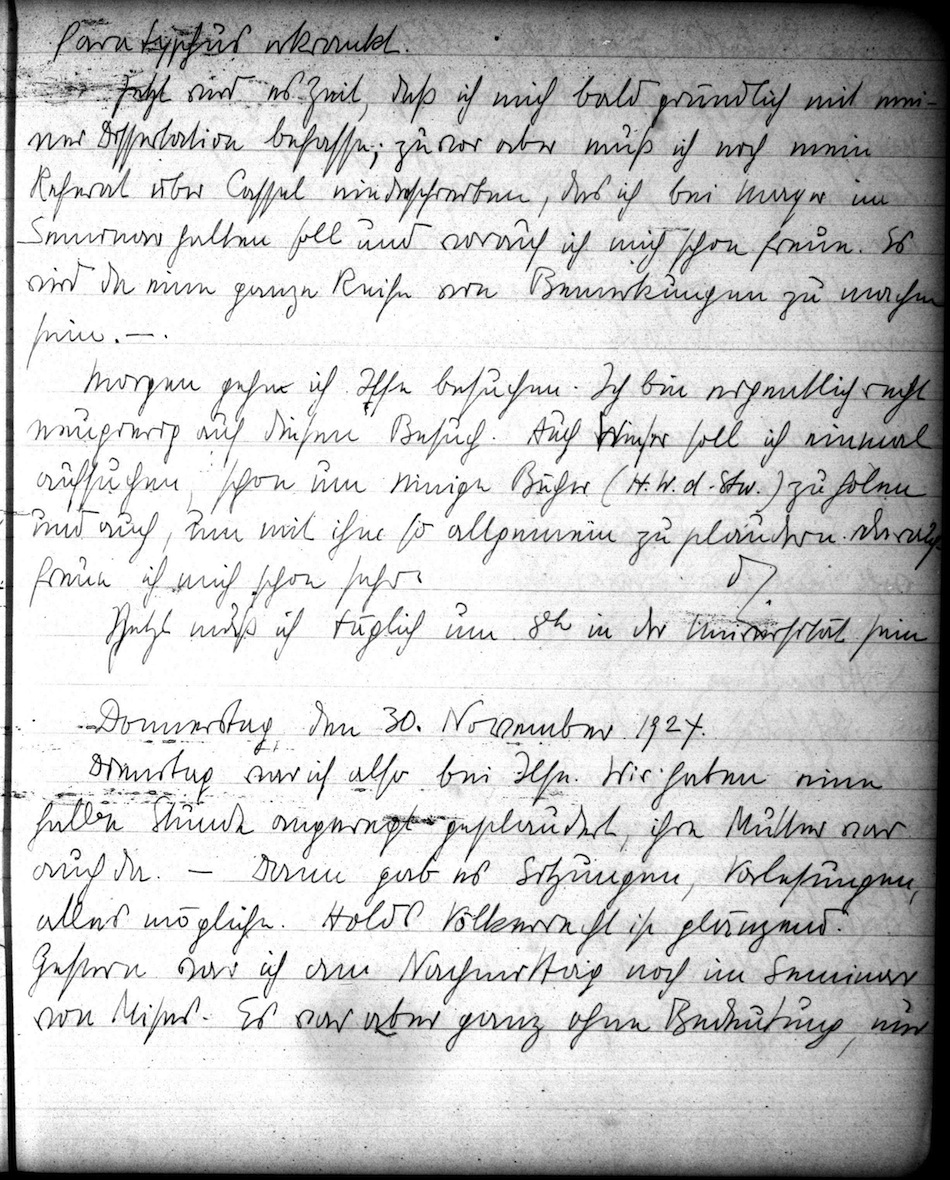 Paratyphus erkrankt.
Jetzt wird es Zeit, daß ich mich bald gründlich mit mei-
ner Dissertation befasse; zuvor aber muß ich noch mein
Referat über Cassel niederschreiben, das ich bei Mayer im
Seminar halten soll und worauf ich mich schon freue. Es
wird da eine ganze Reihe von Bemerkungen zu machen
sein. —.
Morgen gehe ich Ilse besuchen. Ich bin eigentlich recht
neugierig auf diesen Besuch. Auch Wieser soll ich einmal
aufsuchen, schon um einige Bücher (H.W.d.Stw.) zu holen
und auch, um mit ihm so allgemein zu plaudern. darauf
freue ich mich schon sehr.
Jetzt muß ich täglich um 8h in der Universität sein
Donnerstag, den 30. November 1924.
Dienstag war ich also bei Ilse. Wir haben eine
halbe Stunde angeregt geplaudert, ihre Mutter war
auch da. — Dann gab es Sitzungen, Vorlesungen,
alles mögliche. Holds Völkerrecht ist glänzend.
Gestern war ich am Nachmittag noch im Seminar
von Mises. Es war aber ganz ohne Bedeutung, nur